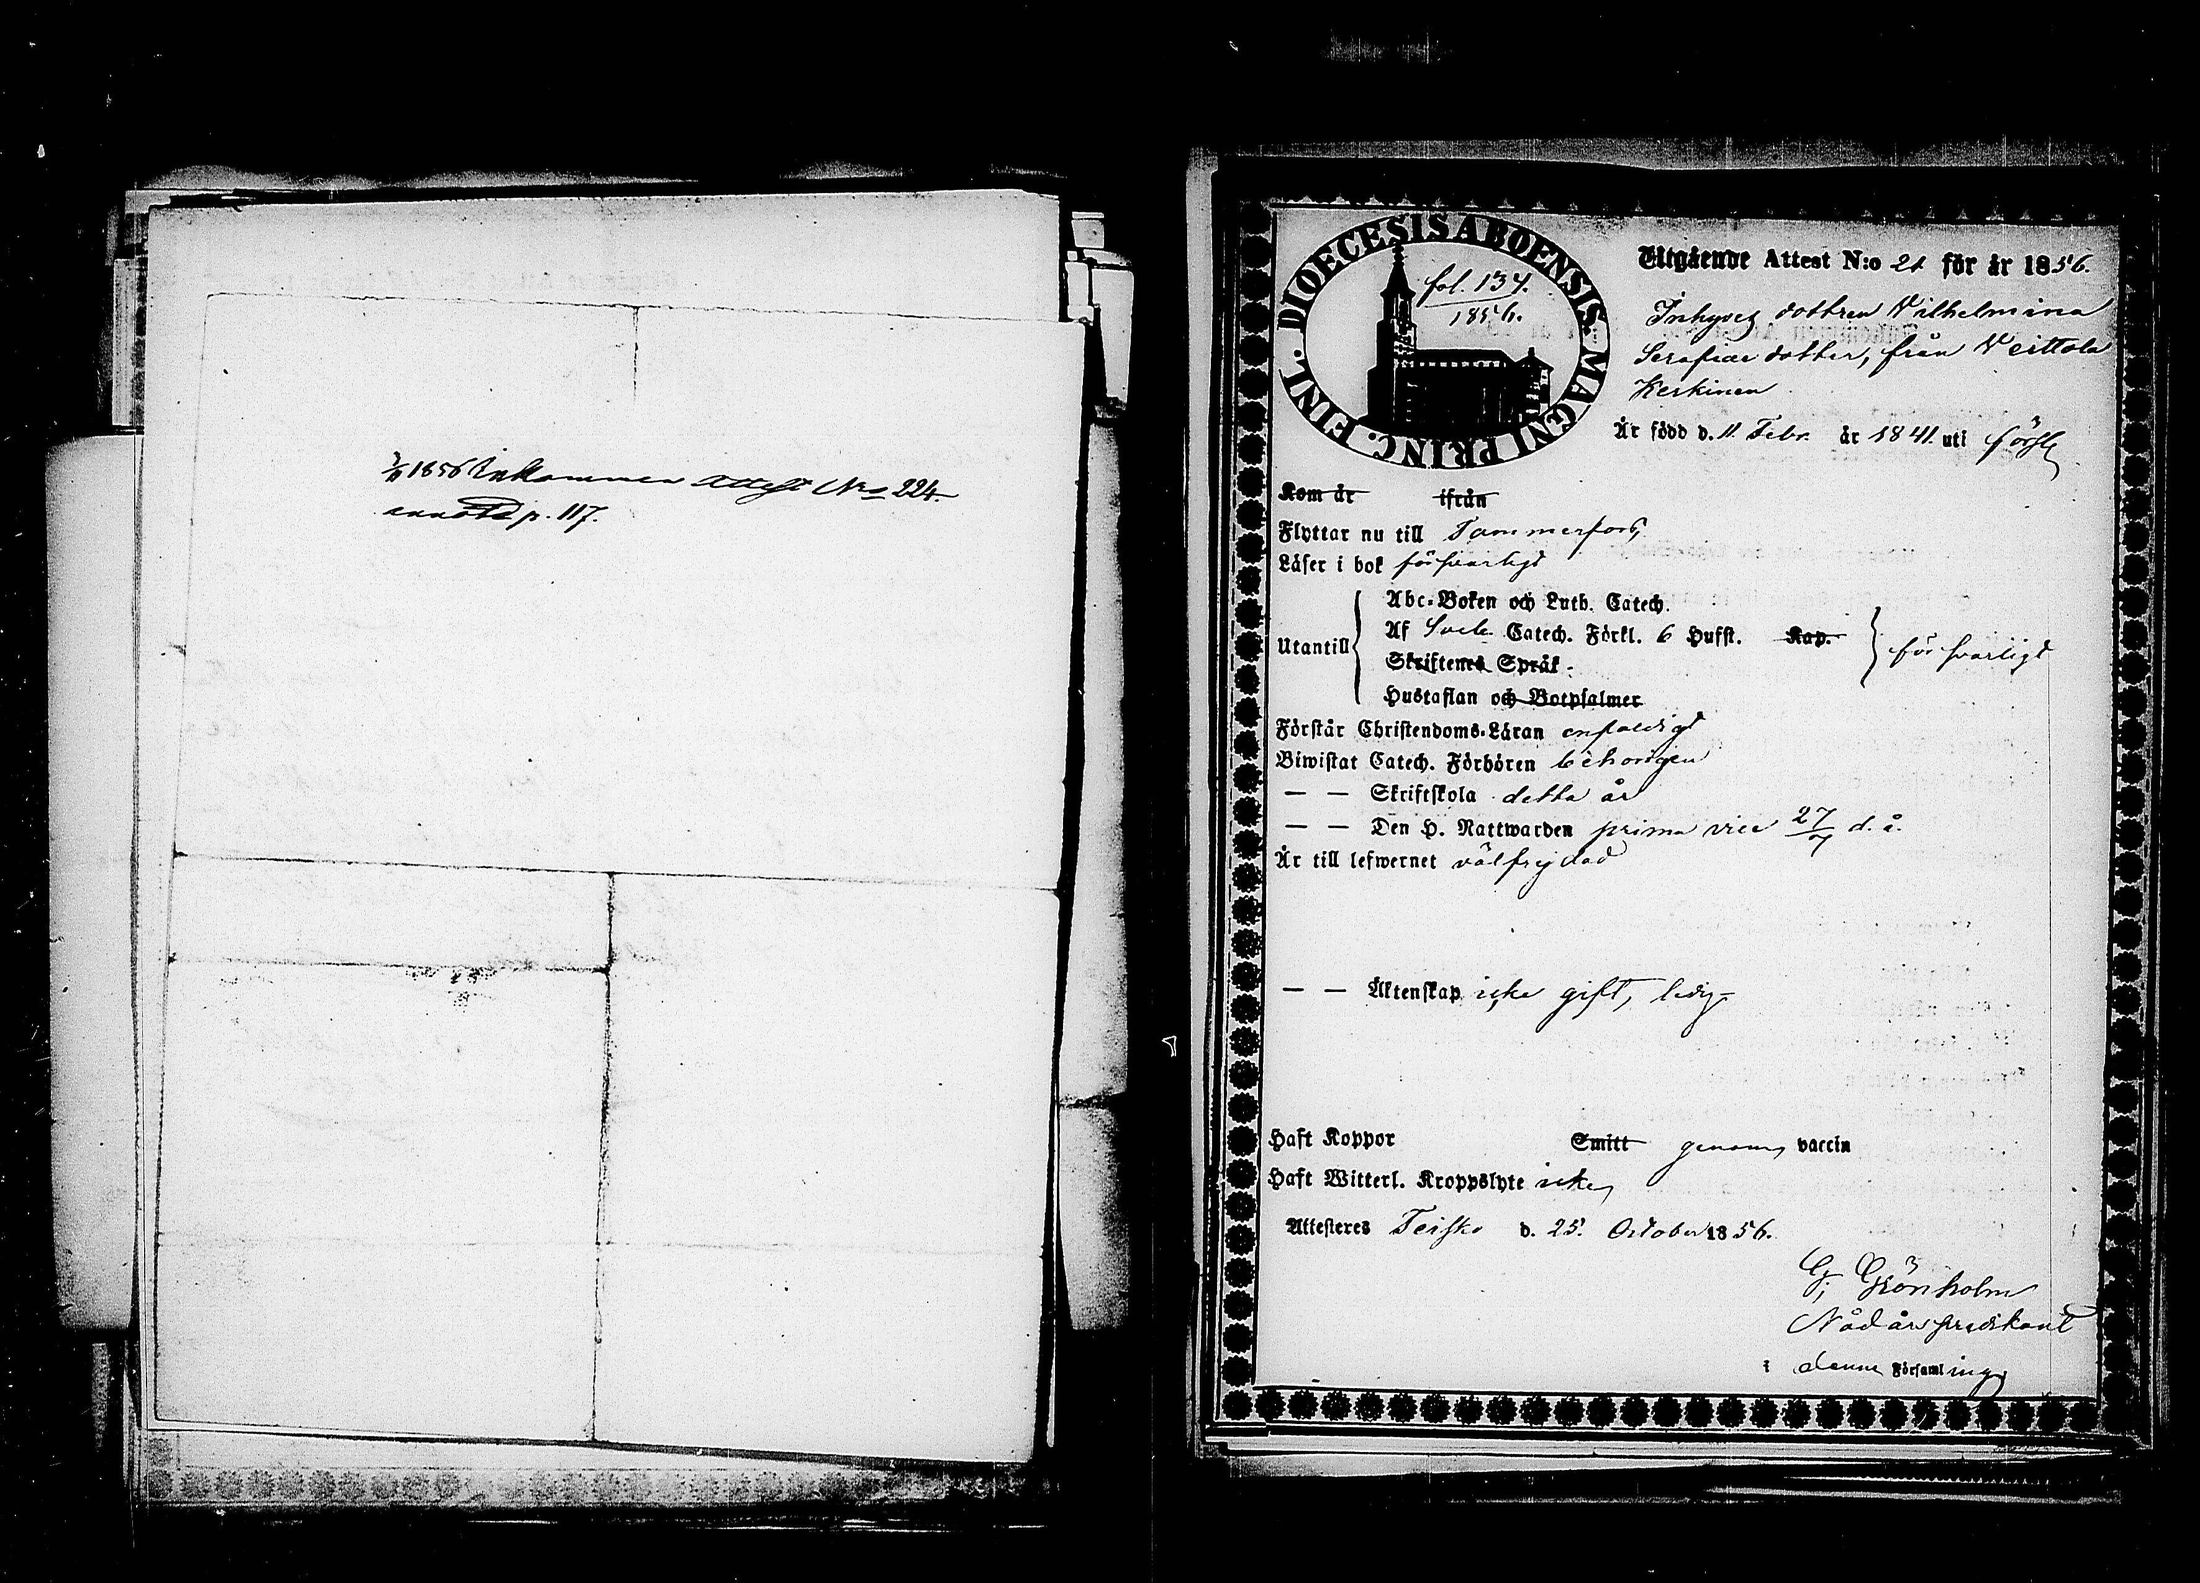 1856 Inkommen Attest No 224
annot. p. 117.
DIOECESIS ABOENSIS. MAGNI PRINC. FINL.
fol. 134.
1856.
Utgående Attest N:o 21 för år 1856.
Inhyses dottren Vilhelmina
Serafia dotter, från Veittola
Keskinen
Är född d. 11. Febr. år 1841. uti förstg
Kom år ifrån
Flyttar nu till Tammerfors,
Läser i bok försvarligt
Abc-Boken och Luth. Catech.
Utantill Af Sveb. Catech. Förkl. 6 Hufst. Kap. försvarligt
Skriftenes Språk.
Hustaflan och Botpsalmer
Förstår Christendoms-Läran enfaldigt
Biwistat Catech. Förhören behörigen
— — Skriftskola detta år
— — Den H. Nattwarden prima vice 27/7 d. å.
Är till lefwernet välfrejdad
— — Äktenskap icke gift, ledig
Haft Koppor Smitt genom vaccin
Haft Witterl. Kroppslyte icke
Attesteres Teisko d. 25. October 1856.
G. Grönholm
Nådårspredikant
i denna Församling